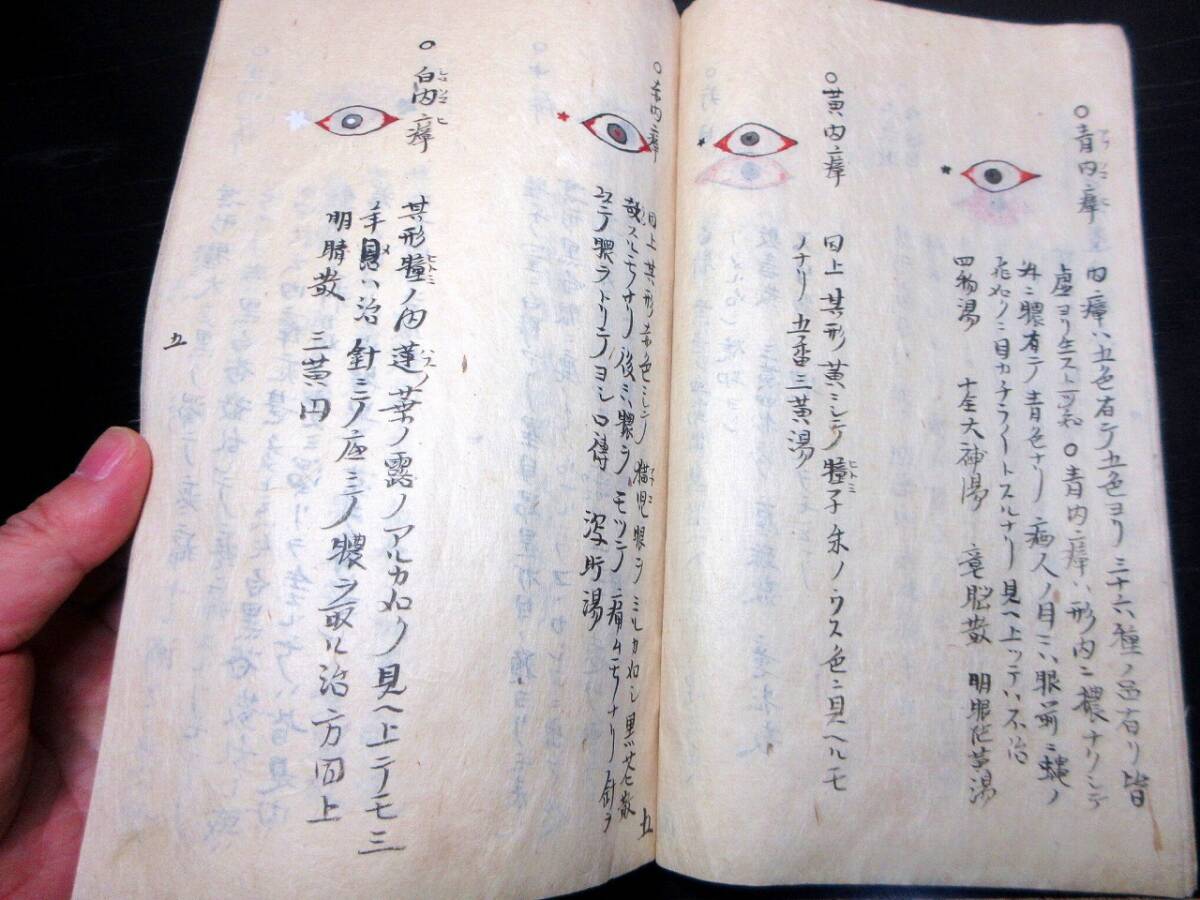 ○青内障
アヲソコヒ
内障ハ五色有テ五色ヨリ三十六種ノ品有リ皆
虚ヨリ生スト可知○青内障ハ形内ニ膿ナリシテ
外ニ膿有テ青色ナリ病人ノ目ニハ眼前ニ蝿ノ
飛如クニ目カチラ〱トスルナリ見ヘ上ッテハ不治
四物湯 十全大補湯 竜脳散 明眼地黄湯
○黄内障
同上其形黄ニシテ瞳子朱ノウス色ニ見ヘルモ
ヒトミ
ノナリ五番三黄湯
○赤内障
同上其形赤色ニシテ猫児眼ヲミルカ如シ黒花散
散スルモナリ後ニハ膿ヲモツテ痛ムモナリ針ヲ
立テ膿ヲトリテヨシ口傳 瀉肝湯
五
○白内障
シロソコヒ
其形瞳ノ内蓮葉ノ露ノアルカ如ク見ヘ上テモ三
ヒトミ
年目ハ治針ニテ立ニテ膿ヲ取ル治方同上
明晴散 三黄円
五